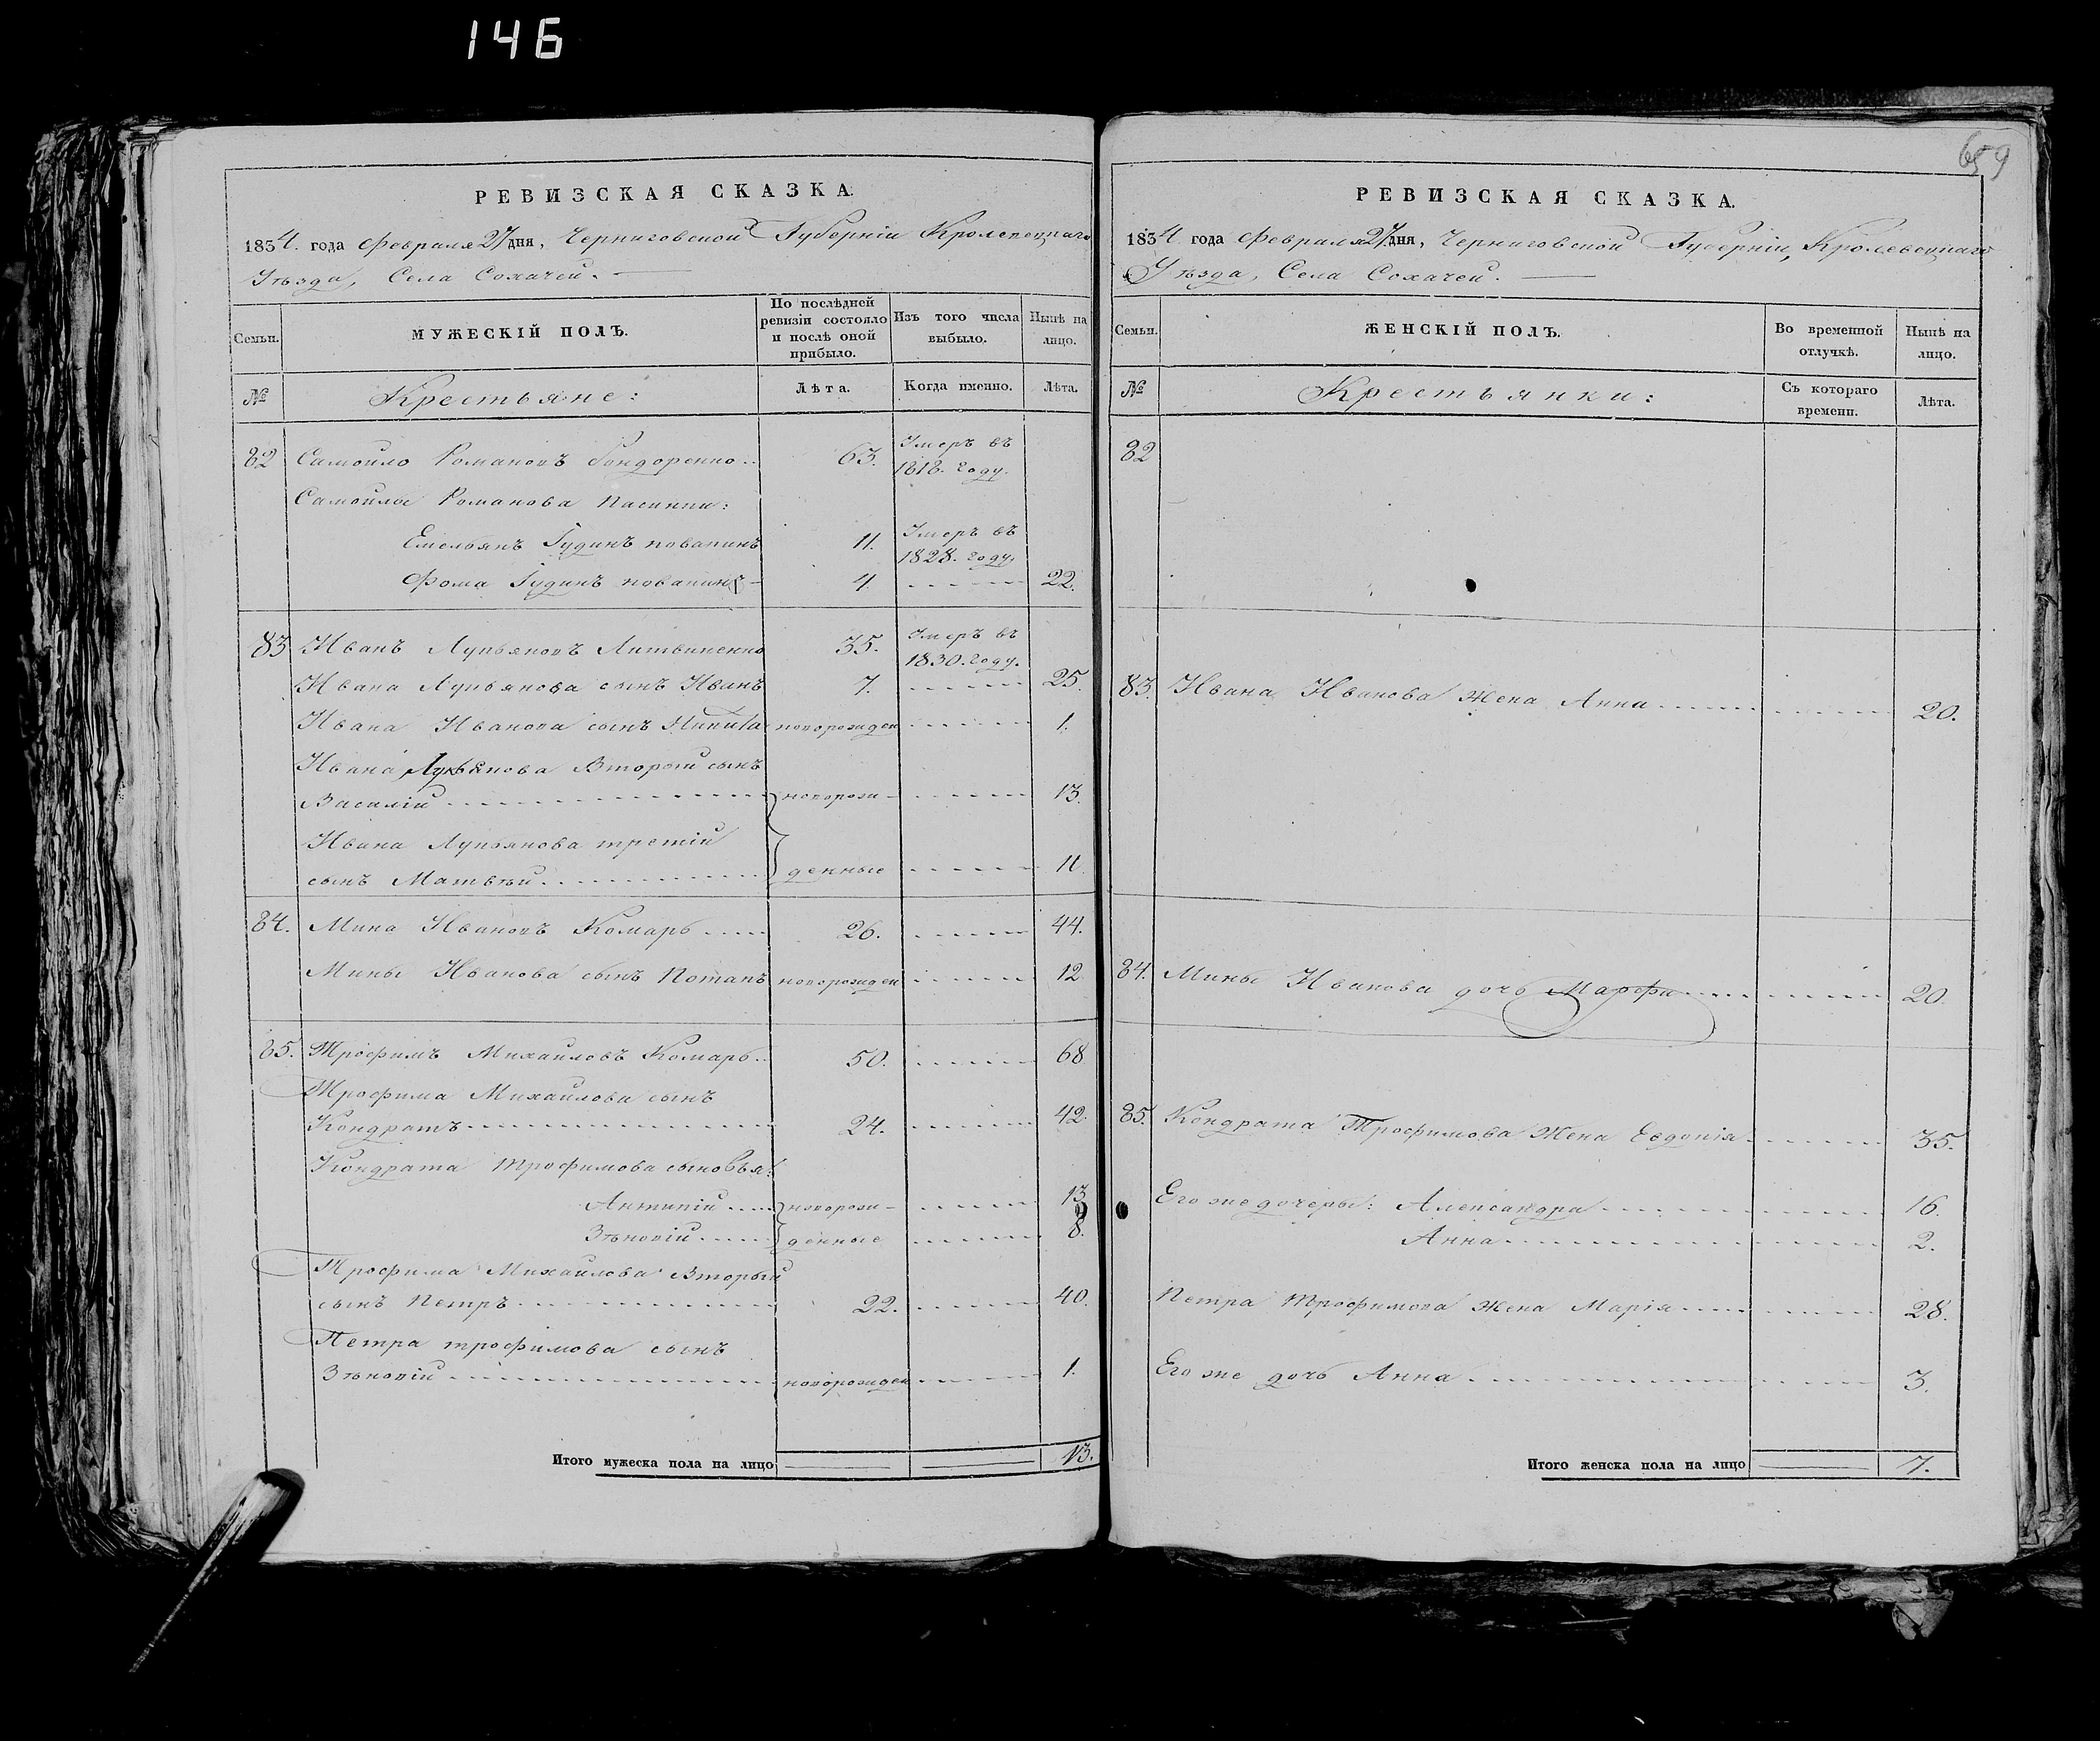 146
659
РЕВИЗСКАЯ СКАЗКА.
1834. года Февраля 27 дня, Черниговской Губерніи Кролевецкаго
Уѣзда, Села Сохачей.
Семьи.
МУЖЕСКІЙ ПОЛЪ.
По послѣдней ревизіи состояло и послѣ оной прибыло.
Изъ того числа выбыло.
Нынѣ на лицо.
№
Крестьяне:
Лѣта.
Когда именно.
Лѣта.
82 Самойло Романовъ 63. Умеръ въ 1818. году.
Самойлы Романова Пасинки:
Емельянъ 11. Умеръ въ 1828. году,
Фома 4 22.
83 Иванъ Лукьяновъ Литвиненко 35. Умеръ въ 1830. году.
Ивана Лукьянова сынъ Иванъ 7. 25.
Ивана Иванова сынъ Никита новорожден 1.
Ивана Лукьянова Вторый сынъ
Василій новорож- 13.
Ивана Лукьянова третій
сынъ Матвѣй денные 11
84. Мина Ивановъ Комаръ 26. 44.
Мины Иванова сынъ Потапъ новорожден 12
85. Трофимъ Михайловъ Комаръ 50. 68
Трофима Михайлова сынъ
Кондратъ 24. 42.
Кондрата Трофимова сыновья:
Антипій новорож- 13
Зѣновій денные 8.
Трофима Михайлова Вторый
сынъ Петръ 22. 40.
Петра трофимова сынъ
Зѣновій новорожден 1.
Итого мужеска пола на лицо 13.
РЕВИЗСКАЯ СКАЗКА.
1834. года Февраля 27 дня, Черниговской Губерніи, Кролевецкаго
Уѣзда, Села Сохачей.
Семьи.
ЖЕНСКІЙ ПОЛЪ.
Во временной отлучкѣ.
Нынѣ на лицо.
№
Крестьянки:
Съ котораго времени.
Лѣта.
82
83. Ивана Иванова Жена Анна 20.
84. Мины Иванова дочь Марфа 20.
85. Кондрата Трофимова Жена Евдокія 35.
Его же дочери: Александра 16.
Анна 2.
Петра Трофимова Жена Марія 28.
Его же дочь Анна 3.
Итого женска пола на лицо 7.